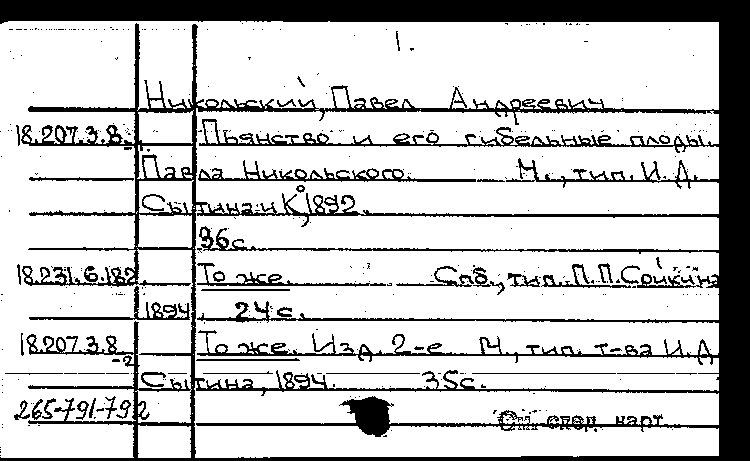 1.
Никольский, Павел Андреевич
18.207.3.8-1. Пьянство и его гибельные плоды.
Павла Никольского. М., тип. И. Д.
Сытина и К°, 1892.
36с.
18.231.6.182. То же. Спб., тип. П.П.Сойкина
1894. 24с.
18.207.3.8-2 То же. Изд. 2-е М., тип. т-ва И.Д
Сытина, 1894. 35с.
265-791-792 См след. карт.